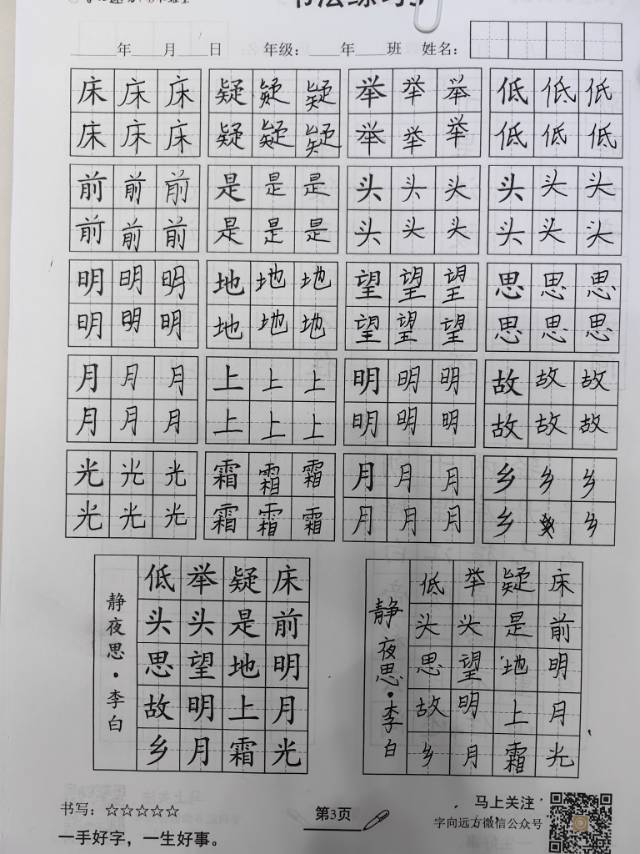 书法练习
年 月 日 年级: 年 班 姓名:
床床床 疑疑疑 举举举 低低低
床床床 疑疑疑 举举举 低低低
前前前 是是是 头头头 头头头
前前前 是是是 头头头 头头头
明明明 地地地 望望望 思思思
明明明 地地地 望望望 思思思
月月月 上上上 明明明 故故故
月月月 上上上 明明明 故故故
光光光 霜霜霜 月月月 乡乡乡
光光光 霜霜霜 月月月 乡乡
床前明月光
疑是地上霜
举头望明月
低头思故乡
静夜思·李白
床前明月光
疑是地上霜
举头望明月
低头思故乡
静夜思·李白
书写:☆☆☆☆☆
一手好字,一生好事。
第3页
马上关注
字向远方微信公众号